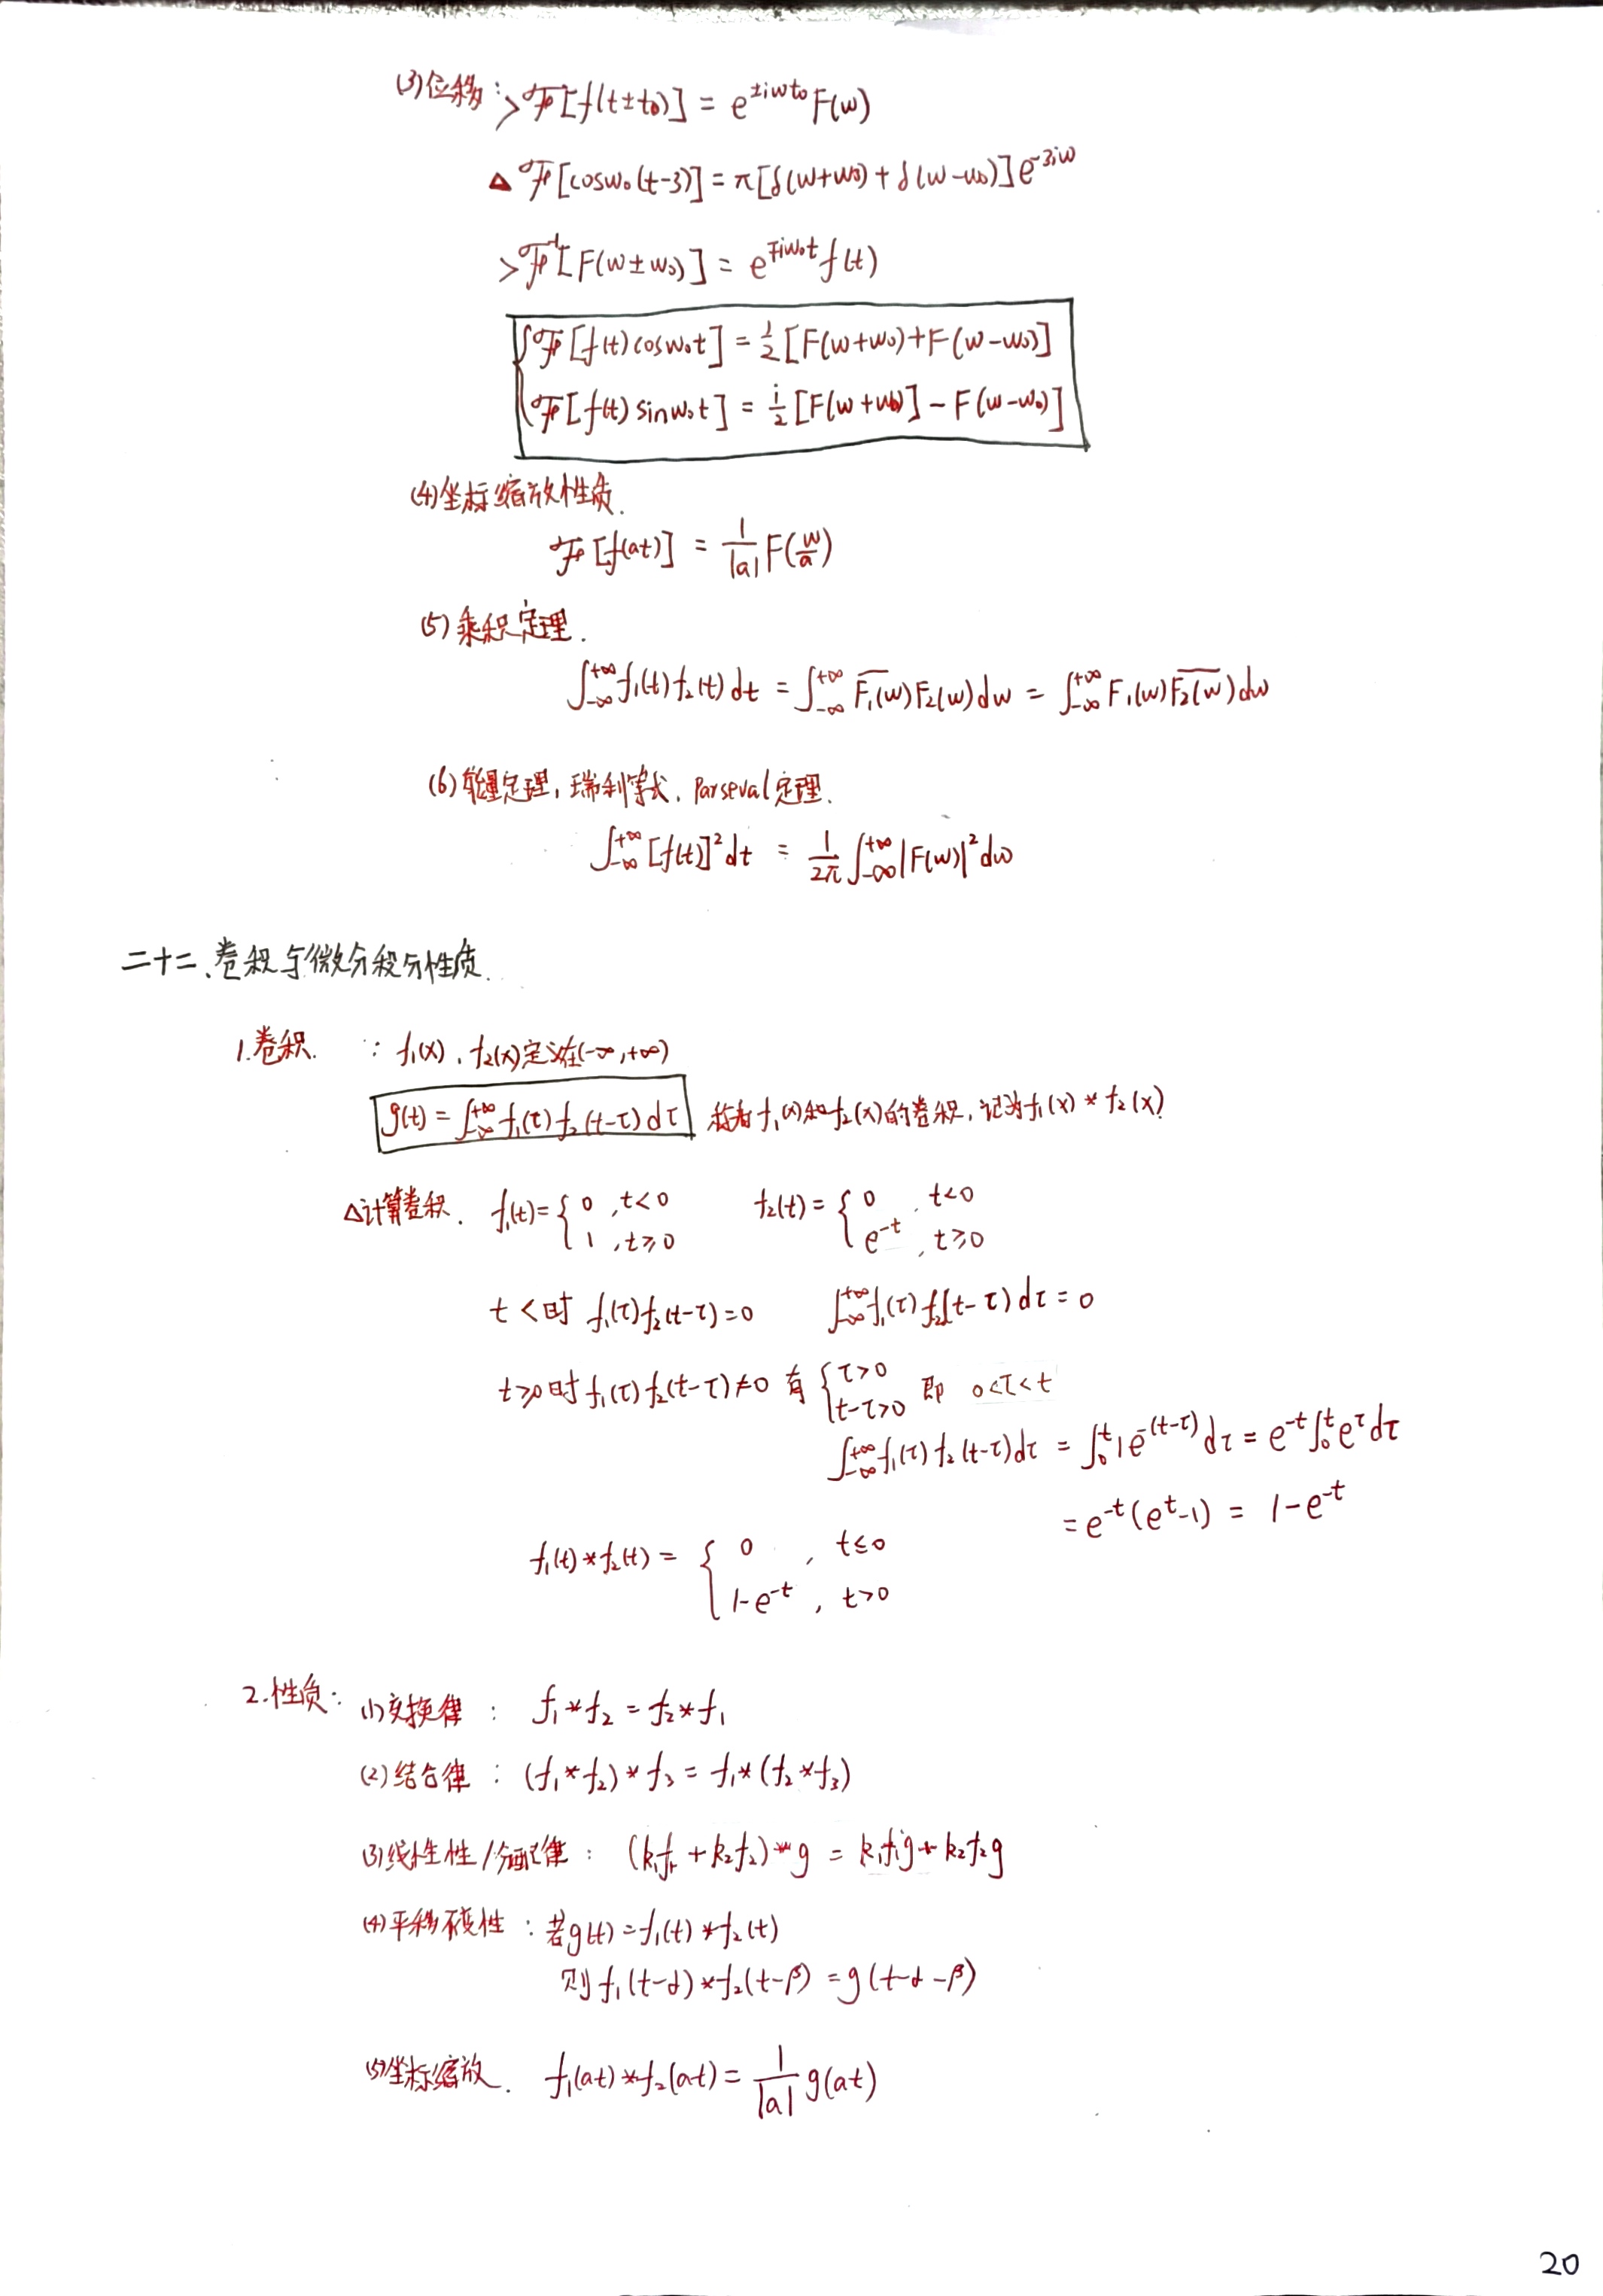 (3)位移:>ℱ[f(t±t₀)] = e^{±iwt₀}F(w)
△ℱ[cosw₀(t-3)] = π[δ(w+w₀)+δ(w-w₀)]e^{-3iw}
>ℱ⁻¹[F(w±w₀)] = e^{∓iw₀t}f(t)
{ℱ[f(t)cosw₀t] = 1/2[F(w+w₀)+F(w-w₀)]
ℱ[f(t)sinw₀t] = i/2[F(w+w₀)]-F(w-w₀)]
(4)坐标缩放性质.
ℱ[f(at)] = 1/|a| F(w/a)
(5)乘积定理.
∫_{-∞}^{+∞}f₁(t)f₂(t)dt = ∫_{-∞}^{+∞}\overline{F₁(w)}F₂(w)dw = ∫_{-∞}^{+∞}F₁(w)\overline{F₂(w)}dw
(6)能量定理,瑞利等式,Parseval定理.
∫_{-∞}^{+∞}[f(t)]²dt = 1/2π ∫_{-∞}^{+∞}|F(w)|²dw
二十二、卷积与微分积分性质.
1.卷积. : f₁(x),f₂(x)定义在(-∞,+∞)
g(t) = ∫_{-∞}^{+∞}f₁(τ)f₂(t-τ)dτ 称为f₁(x)和f₂(x)的卷积,记为f₁(x)*f₂(x)
△计算卷积. f₁(t)={0 ,t<0 1 ,t≥0 f₂(t)={0 ,t<0 e^{-t} ,t≥0
t<时 f₁(τ)f₂(t-τ)=0 ∫_{-∞}^{+∞}f₁(τ)f₂(t-τ)dτ=0
t≥0时f₁(τ)f₂(t-τ)≠0 有{τ>0 t-τ>0 即 0<τ<t
∫_{-∞}^{+∞}f₁(τ)f₂(t-τ)dτ = ∫_0^t 1e^{-(t-τ)}dτ = e^{-t}∫_0^t e^τdτ
=e^{-t}(e^t-1) = 1-e^{-t}
f₁(t)*f₂(t) = {0 , t≤0 1-e^{-t} , t>0
2.性质: (1)交换律 : f₁*f₂ = f₂*f₁
(2)结合律 : (f₁*f₂)*f₃ = f₁*(f₂*f₃)
(3)线性性/分配律 : (k₁f₁+k₂f₂)*g = k₁f₁g+k₂f₂g
(4)平移不变性 : 若g(t)=f₁(t)*f₂(t)
则f₁(t-α)*f₂(t-β)=g(t-α-β)
(5)坐标缩放. f₁(at)*f₂(at) = 1/|a| g(at)
20